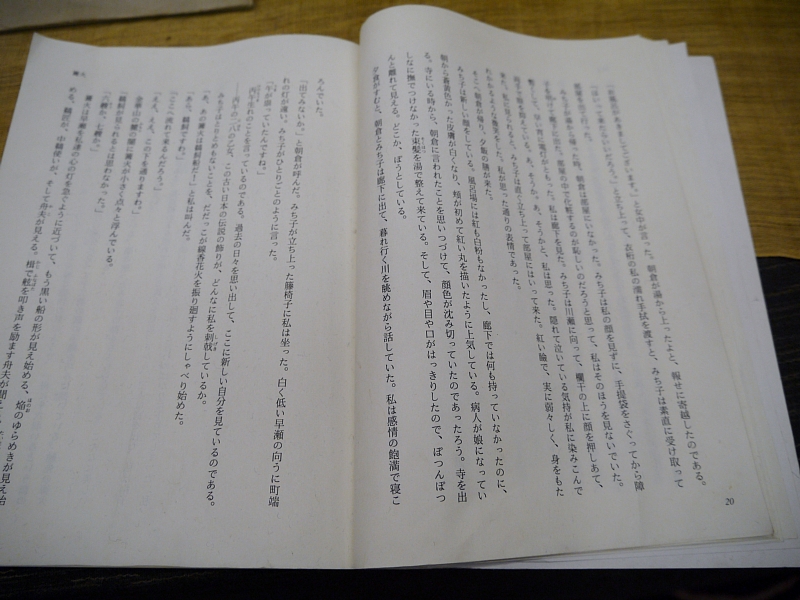 「お風呂があきましてございます。」と女中が言った。朝倉が湯から上ったよと、報せに寄越したのである。
「はいって来たらいいだろう。」と立ち上って、衣桁の私の濡れ手拭を渡すと、みち子は素直に受け取って
部屋を出て行った。
みち子が湯から帰った時、朝倉は部屋にいなかった。みち子は私の顔を見ずに、手提袋をさぐってから障
子を開けて廊下に出た。部屋の中で化粧するのが恥しいのだろうと思って、私はそのほうを見ないでいた。
暫くして、早い宵に電灯がともった。私は廊下を見た。みち子は川瀬に向って、欄干の上に顔を押しあて、
両手で瞼を抱えている。あ、そうか。あ、そうかと、私は思った。隠れて泣いている気持が私に染みこんで
来た。私に見られると、みち子は直ぐ立ち上って部屋にはいって来た。紅い瞼で、実に弱々しく、身をもた
れかかるような微笑をした。私が思った通りの表情であった。
そこへ朝倉が帰り、夕飯の膳が来た。
みち子は新しい顔をしている。風呂場には紅も白粉もなかったし、廊下では何も持っていなかったのに、
朝から蒼黄色かった皮膚が白くなり、頬が初めて紅い丸を描いたように上気している。病人が娘になってい
る。寺にいる時から、朝倉に言われたことを思いつづけて、顔色が沈み切っていたのであったろう。寺を出
しなに撫でつけなかった束髪を湯で整えて来ている。そして、眉や目や口がはっきりしたので、ぽつんぽつ
んと離れて見える。どこか、ぽうとしている。
夕食がすむと、朝倉とみち子は廊下に出て、暮れ行く川を眺めながら話していた。私は感情の飽満で寝こ
20
篝火
ろんでいた。
「出てみないか。」と朝倉が呼んだ。みち子が立ち上った藤椅子に私は坐った。白く低い早瀬の向うに町端
れの灯が遠い。みち子がひとりごとのように言った。
「午が祟っていたんですね。」
丙午生れのことを言っているのである。過去の日々を思い出して、ここに新しい自分を見ているのである。
――丙午の二八の乙女、この古い日本の伝説の飾りが、どんなに私を刺戟しているか。
みち子はとりとめもないことを、だだっこが線香花火を振り廻すようにしゃべり始めた。
「あ、あの篝火は鵜飼船だ！」と私は叫んだ。
「あら、鵜飼ですわね。」
「ここへ流れて来るんだろう。」
「ええ、ええ、この下を通りますわ。」
金華山の麓の闇に篝火が小さく点々と浮んでいる。
「鵜飼が見られるとは思わなかった。」
「六艘か、七艘か。」
篝火は早瀬を私達の心の灯を急ぐように近づいて、もう黒い船の形が見え始める、焔のゆらめきが見え始
める、鵜匠が、中鵜使いが、そして舟夫が見える。楫で舷を叩き声を励ます舟夫が聞え